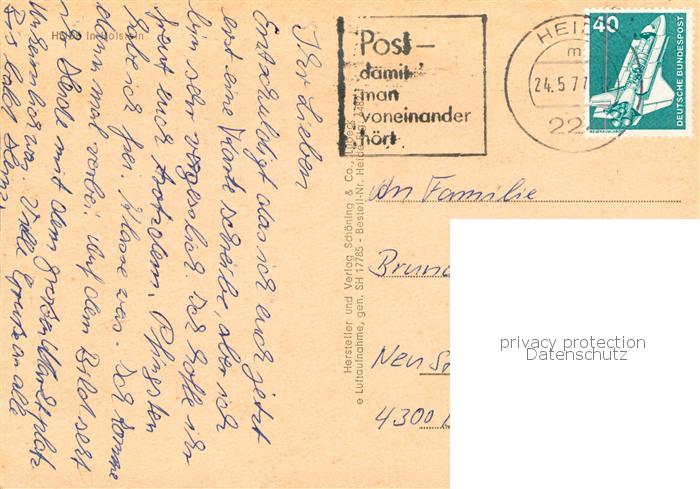 Heide in Holstein
Ihr Lieben
Entschuldigt das ich euch jetzt
erst eine Karte schreibe, aber ich
bin sehr vergesslich. Ich hoffe ihr
freut euch trotzdem. Pfingsten
habe ich frei. Klasse was. Ich komme
dann mal vorbei. Auf dem Bild seht
ihr Heide mit dem großen Marktplatz
Unheimlich was. Viele Grüße an alle
Bis bald
Hersteller und Verlag Schöning & Co., Lübeck
e Luftaufnahme, gen. SH 17785 - Bestell-Nr. Heide
Post-
damit
man
voneinander
hört
HEID
m
24.5.77
22
40
DEUTSCHE BUNDESPOST
An Familie
Brun
Neu
4300
privacy protection
Datenschutz